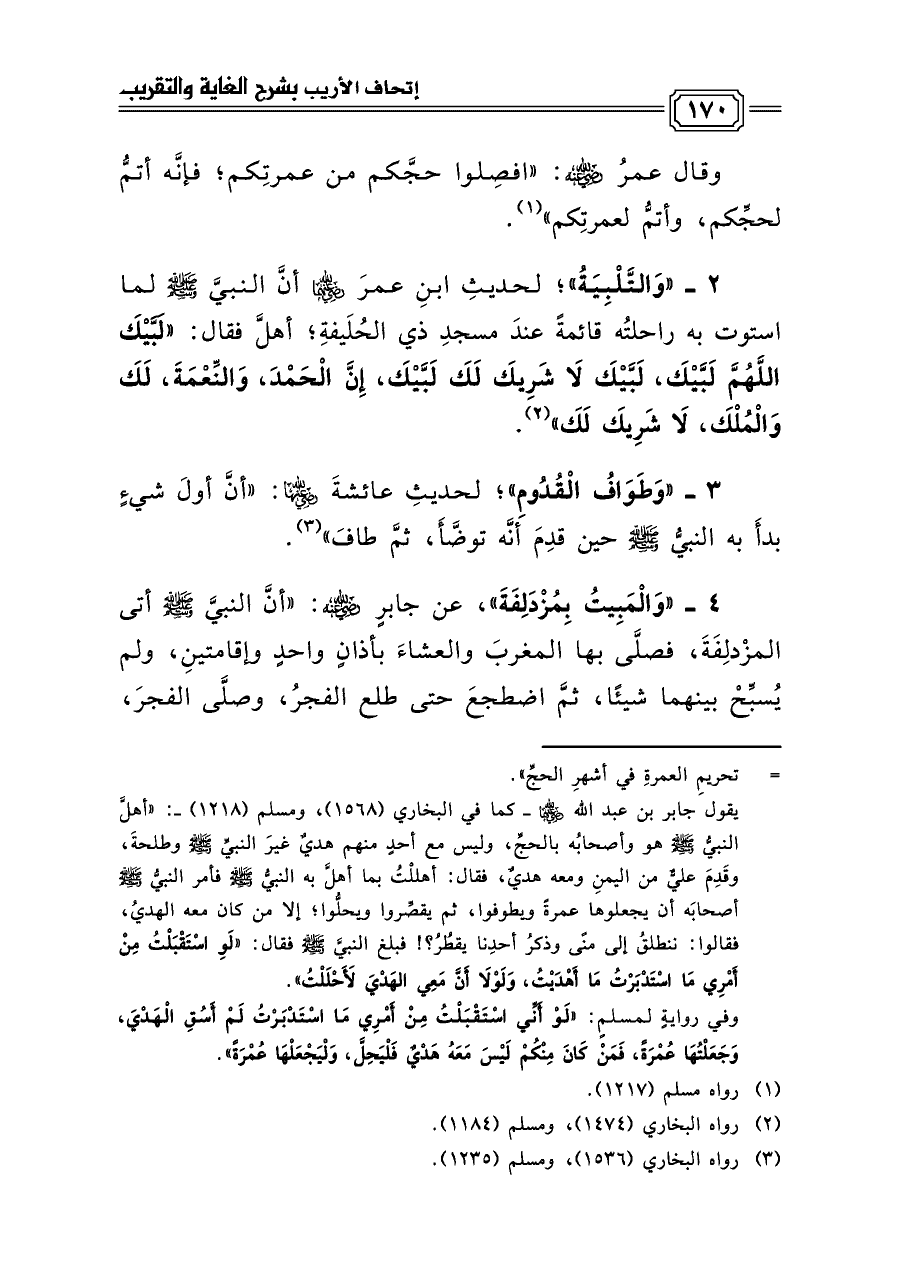 إتحاف الأريب بشرح الغاية والتقريب
١٧٠
وقال عمرُ رضي الله عنه: «افصِلوا حجَّكم من عمرتِكم؛ فإنَّه أتمُّ
لحجِّكم، وأتمُّ لعمرتِكم»(١).
٢ ـ «وَالتَّلْبِيَةُ»؛ لحديثِ ابنِ عمرَ رضي الله عنهما أنَّ النبيَّ ﷺ لما
استوت به راحلتُه قائمةً عندَ مسجدِ ذي الحُلَيفةِ؛ أهلَّ فقال: «لَبَّيْكَ
اللَّهُمَّ لَبَّيْكَ، لَبَّيْكَ لَا شَرِيكَ لَكَ لَبَّيْكَ، إِنَّ الْحَمْدَ، وَالنِّعْمَةَ، لَكَ
وَالْمُلْكَ، لَا شَرِيكَ لَكَ»(٢).
٣ ـ «وَطَوَافُ الْقُدُومِ»؛ لحديثِ عائشةَ رضي الله عنها: «أنَّ أولَ شيءٍ
بدأَ به النبيُّ ﷺ حين قدِمَ أَنَّه توضَّأَ، ثمَّ طافَ»(٣).
٤ ـ «وَالْمَبِيتُ بِمُزْدَلِفَةَ»، عن جابرٍ رضي الله عنه: «أنَّ النبيَّ ﷺ أتى
المزْدلِفَةَ، فصلَّى بها المغربَ والعشاءَ بأذانٍ واحدٍ وإقامتينِ، ولم
يُسبِّحْ بينهما شيئًا، ثمَّ اضطجعَ حتى طلع الفجرُ، وصلَّى الفجرَ،
= تحريمِ العمرةِ في أشهرِ الحجِّ».
يقول جابر بن عبد الله رضي الله عنهما ـ كما في البخاري (١٥٦٨)، ومسلم (١٢١٨) ـ: «أهلَّ
النبيُّ ﷺ هو وأصحابُه بالحجِّ، وليس مع أحدٍ منهم هديٌ غيرَ النبيِّ ﷺ وطلحةَ،
وقَدِمَ عليٌّ من اليمنِ ومعه هديٌ، فقال: أهللْتُ بما أهلَّ به النبيُّ ﷺ فأمر النبيُّ ﷺ
أصحابَه أن يجعلوها عمرةً ويطوفوا، ثم يقصِّروا ويحلُّوا؛ إلا من كان معه الهديُ،
فقالوا: ننطلقُ إلى منًى وذكرُ أحدِنا يقطُرُ؟! فبلغ النبيَّ ﷺ فقال: «لَوِ اسْتَقْبَلْتُ مِنْ
أَمْرِي مَا اسْتَدْبَرْتُ مَا أَهْدَيْتُ، وَلَوْلَا أَنَّ مَعِي الهَدْيَ لَأَحْلَلْتُ».
وفي روايةٍ لمسلمٍ: «لَوْ أَنِّي اسْتَقْبَلْتُ مِنْ أَمْرِي مَا اسْتَدْبَرْتُ لَمْ أَسُقِ الْهَدْيَ،
وَجَعَلْتُهَا عُمْرَةً، فَمَنْ كَانَ مِنْكُمْ لَيْسَ مَعَهُ هَدْيٌ فَلْيَحِلَّ، وَلْيَجْعَلْهَا عُمْرَةً».
(١) رواه مسلم (١٢١٧).
(٢) رواه البخاري (١٤٧٤)، ومسلم (١١٨٤).
(٣) رواه البخاري (١٥٣٦)، ومسلم (١٢٣٥).